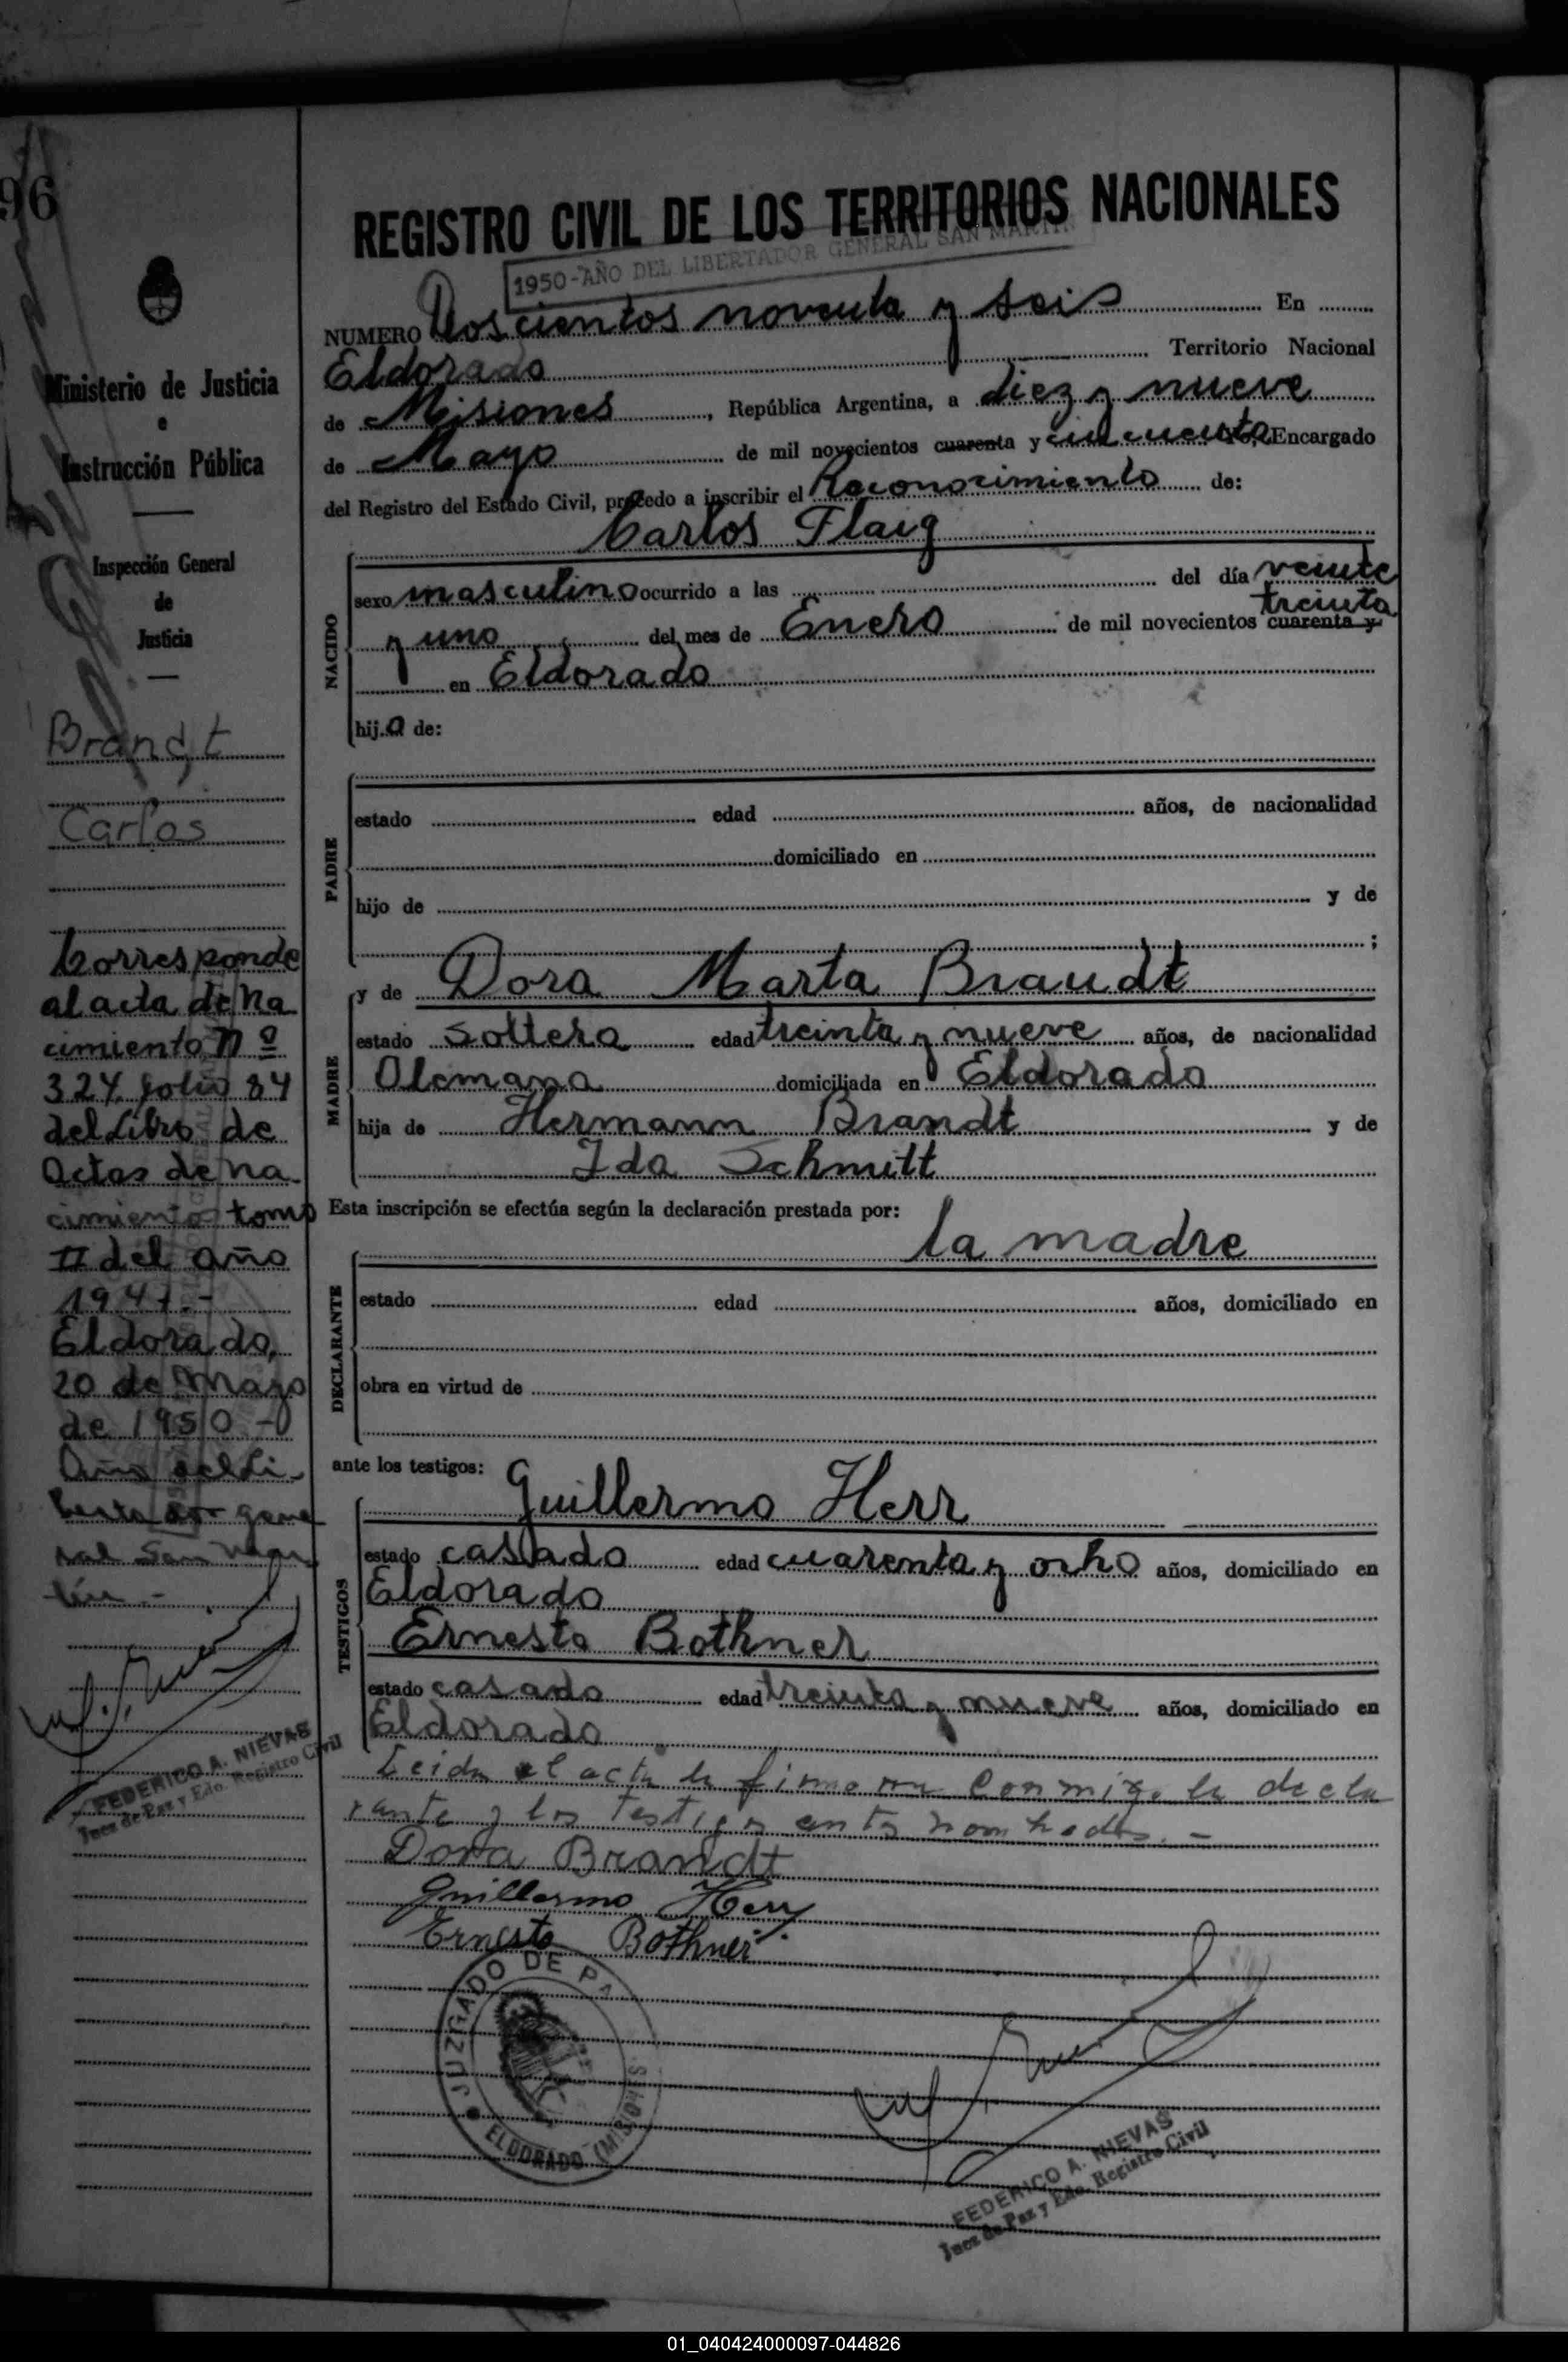 96
Ministerio de Justicia
e
Instrucción Pública
Inspección General
de
Justicia
Brandt
Carlos
Corresponde
al acta de na
cimiento nº
324 folio 84
del Libro de
Actas de na
cimientos tomo
II del año
1941.-
Eldorado,
20 de Mayo
de 1950 -
Año del Li-
bertador gene
ral San Mar
tín -
FEDERICO A. NIEVAS
Juez de Paz y Edo. Registro Civil
REGISTRO CIVIL DE LOS TERRITORIOS NACIONALES
1950-AÑO DEL LIBERTADOR GENERAL SAN MARTIN
NUMERO Doscientos noventa y seis En
Eldorado Territorio Nacional
de Misiones, República Argentina, a diez y nueve
de Mayo de mil novecientos cuarenta y cincuenta, Encargado
del Registro del Estado Civil, procedo a inscribir el Reconocimiento de:
Carlos Flaig
NACIDO
sexo masculino ocurrido a las del día veinte
treinta
y uno del mes de Enero de mil novecientos cuarenta y
en Eldorado
hij.o de:
PADRE
estado edad años, de nacionalidad
domiciliado en
hijo de y de
;
MADRE
y de Dora Marta Brandt
estado soltera edad treinta y nueve años, de nacionalidad
Alemana domiciliada en Eldorado
hija de Hermann Brandt y de
Ida Schmitt
Esta inscripción se efectúa según la declaración prestada por:
la madre
DECLARANTE
estado edad años, domiciliado en
obra en virtud de
ante los testigos:
Guillermo Herr
TESTIGOS
estado casado edad cuarenta y ocho años, domiciliado en
Eldorado
Ernesto Bothner
estado casado edad treinta y nueve años, domiciliado en
Eldorado
Leida el acta la firmaron conmigo la decla
rante y los testigos antes nombrados.-
Dora Brandt
Guillermo Herr
Ernesto Bothner
JUZGADO DE PAZ
ELDORADO (MISIONES)
FEDERICO A. NIEVAS
Juez de Paz y Edo. Registro Civil
01_040424000097-044826